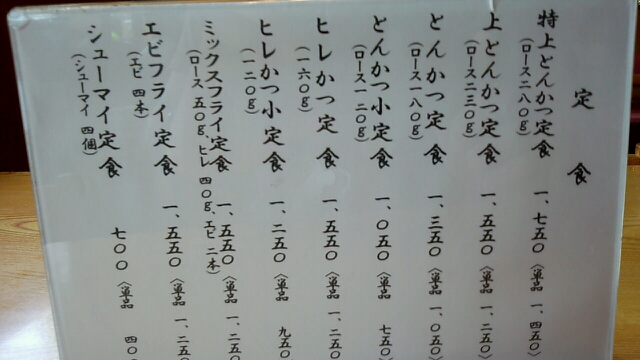 定食
特上どんかつ定食 一、七五〇 〈単品 一、四五〇〉
(ロース二八〇g)
上どんかつ定食 一、五五〇 〈単品 一、二五〇〉
(ロース二三〇g)
どんかつ定食 一、三五〇 〈単品 一、〇五〇〉
(ロース一八〇g)
どんかつ小定食 一、〇五〇 〈単品 七五〇〉
(ロース一二〇g)
ヒレかつ定食 一、五五〇 〈単品 一、二五〇
(一六〇g)
ヒレかつ小定食 一、二五〇 〈単品 九五〇
(一二〇g)
ミックスフライ定食 一、五五〇 〈単品 一、二五〇
(ロース五〇g、ヒレ四〇g、エビ二本)
エビフライ定食 一、五五〇 〈単品 一、二五〇
(エビ四本)
シューマイ定食 七〇〇 〈単品 四〇〇
(シューマイ四個)